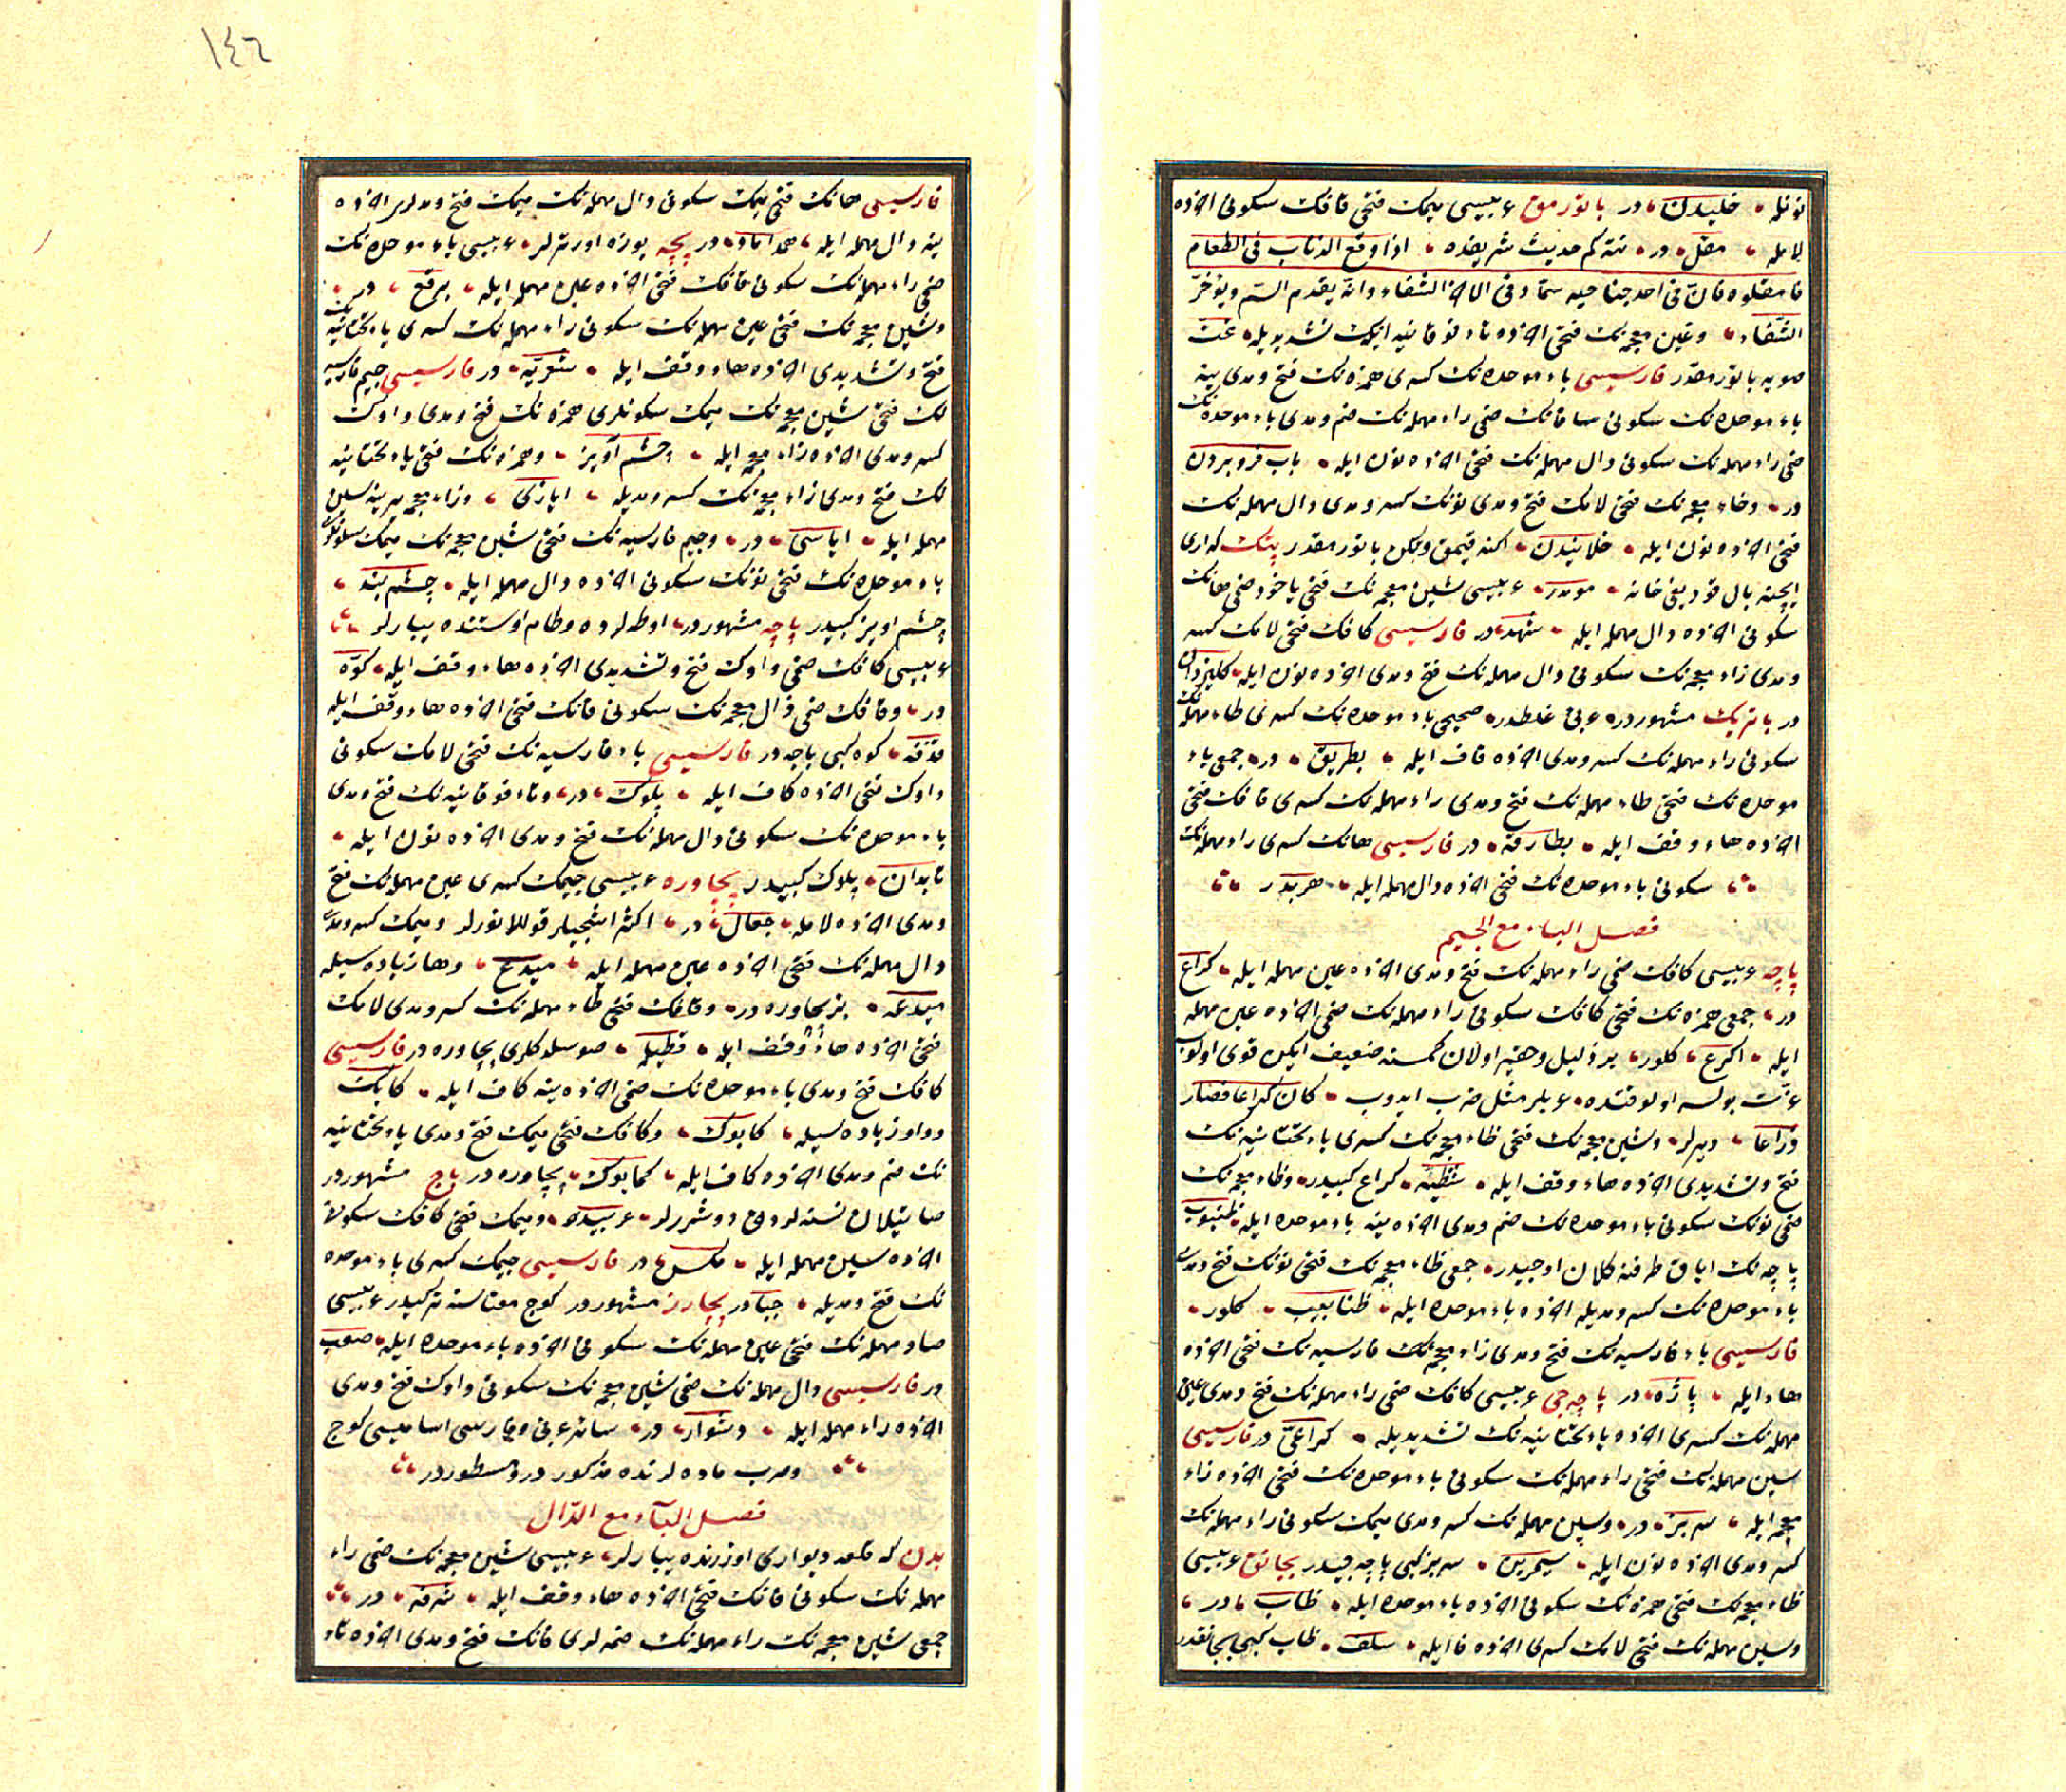 نونله خلیدن در باتورمق عربیسی میمك فتحی قافك سكونی آخرنده
لامله مقل در نته كم حدیث شریفده اذا وقع الذباب فی الطعام
فامقلوه فان فی احد جناحیه سمّا و فی الآخر الشفاء وانّه یقدم السّم ویؤخّر
الشّفاء وغین معجمه نك فتحی آخرنده تاء فوقانیه نك تشدیدیله غتّ
صویه باتورمقدر فارسیسی باء موحده نك كسری همزه نك فتح ومدی ینه
باء موحده نك سكونی فانك ضمی راء مهمله نك ضم ومدی باء موحده نك
ضمی راء مهمله نك سكونی دال مهمله نك فتحی آخرنده نون ایله بآب فروبردن
در وخاء معجمه نك فتحی لامك فتح ومدی نونك كسر ومدی دال مهمله نك
فتحی آخرنده نون ایله خلانیدن اكنه قیمق وبكن باتورمقدر پتك كه اری
ایچنه بال قودیغی خانه مومدر عربیسی شین معجمه نك فتحی یاخود ضمی هانك
سكونی آخرنده دال مهمله ایله شهد در فارسیسی كافك فتحی لامك كسر
ومدی زاء معجمه نك سكونی دال مهمله نك فتح ومدی آخرنده نون ایله كلیزدان
در باتریك مشهوردر عربی غلطدر صحیحی باء موحده نك كسری طاء مهمله نك
سكونی راء مهمله نك كسر ومدی آخرنده قاف ایله بطریق در جمعی باء
موحده نك فتحی طاء مهمله نك فتح ومدی راء مهمله نك كسری قافك فتحی
آخرنده هاء وقف ایله بطارقه در فارسیسی هانك كسری راء مهمله نك
سكونی باء موحده نك فتحی آخرنده دال مهمله ایله هربد در
فصل الباء مع الجیم
پاچه عربیسی كافك ضمی راء مهمله نك فتح ومدی آخرنده عین مهمله ایله كراع
در جمعی همزه نك فتحی كافك سكونی راء مهمله نك ضمی آخرنده عین مهمله
ایله اكرع كلور بر ذلیل وحقیر اولان كمسنه ضعیف ایكن قوی اولوب
عزّت بولسه اولوقتده عربلر مثل ضرب ایدوب كان كراعا فصار
ذراعا دیرلر وشین معجمه نك فتحی ظاء معجمه نك كسری یاء تحتانیه نك
فتح وتشدیدی آخرنده هاء وقف ایله شظیّه كراع كبیدر وظاء معجمه نك
ضمی نونك سكونی باء موحده نك ضم ومدی آخرنده ینه باء موحده ایله ظنبوب
پاچه نك ایاق طرفنه كلان اوجیدر جمعی ظاء معجمه نك فتحی نونك فتح ومدی
باء موحده نك كسر ومدیله آخرنده باء موحده ایله ظنابیب كلور
فارسیسی باء فارسیه نك فتح ومدی زاء معجمه نك فارسیه نك فتحی آخرنده
هاء ایله پاژه در پاچه جی عربیسی كافك ضمی راء مهمله نك فتح ومدی عین
مهمله نك كسری آخرنده یاء تحتانیه نك تشدیدیله كراعیّ در فارسیسی
سین مهمله نك فتحی راء مهمله نك سكونی باء موحده نك فتحی آخرنده زاء
معجمه ایله سربز در وسین مهمله نك كسر ومدی میمك سكونی راء مهمله نك
كسر ومدی آخرنده نون ایله سیمرین سربز كبی پاچه جیدر بجانق عربیسی
ظاء معجمه نك فتحی همزه نك سكونی آخرنده باء موحده ایله ظأب در
وسین مهمله نك فتحی لامك كسری آخرنده فا ایله سلف ظأب كبی بجانقدر
١٤٦
فارسیسی هانك فتحی میمك سكونی دال مهمله نك میمك فتح ومدلری آخرنده
ینه دال مهمله ایله همداماد در پچه یوزه اورترلر عربیسی باء موحده نك
ضمی راء مهمله نك سكونی قافك فتحی آخرنده عین مهمله ایله برقع در
وشین معجمه نك فتحی عین مهمله نك سكونی راء مهمله نك كسری یاء تحتانیه نك
فتح وتشدیدی آخرنده هاء وقف ایله شعریّه در فارسیسی جیم فارسیه
نك فتحی شین معجمه نك میمك سكونلری همزه نك فتح ومدی واوك
كسر ومدی آخرنده زاء معجمه ایله چشم آویز وهمزه نك فتحی یاء تحتانیه
نك فتح ومدی زاء معجمه نك كسر ومدیله ایازی وزاء معجمه یرینه سین
مهمله ایله ایاسی در وجیم فارسیه نك فتحی شین معجمه نك میمك سكونلری
باء موحده نك فتحی نونك سكونی آخرنده دال مهمله ایله چشم بند
چشم آویز كبیدر باجه مشهوردر اوطه لرده وطام اوستنده یپارلر
عربیسی كافك ضمی واوك فتح وتشدیدی آخرنده هاء وقف ایله كوّه
در وقافك ضمی ذال معجمه نك سكونی فانك فتحی آخرنده هاء وقف ایله
قذفه كوه كبی باجه در فارسیسی باء فارسیه نك فتحی لامك سكونی
واوك فتحی آخرنده كاف ایله پلوك در وتاء فوقانیه نك فتح ومدی
باء موحده نك سكونی دال مهمله نك فتح ومدی آخرنده نون ایله
تابدان پلوك كبیدر پچاوره عربیسی جیمك كسری عین مهمله نك فتح
ومدی آخرنده لامله جعال در اكثر آشجیلر قوللانورلر ومیمك كسر ومدی
دال مهمله نك فتحی آخرنده عین مهمله ایله میدع وها زیاده سیله
میدعه بز پچاوره در وقافك فتحی طاء مهمله نك كسر ومدی لامك
فتحی آخرنده هاء وقف ایله قطیله صو سیلدكلری پچاوره در فارسیسی
كافك فتح ومدی باء موحده نك ضمی آخرنده ینه كاف ایله كابك
وواو زیاده سیله كابوك وكافك فتحی میمك فتح ومدی یاء تحتانیه
نك ضم ومدی آخرنده كاف ایله كمایوك پچاوره در باج مشهوردر
صاتیلان نسنه لردن دوشررلر عربیده ومیمك فتحی كافك سكونی
آخرنده سین مهمله ایله مكس در فارسیسی جیمك كسری باء موحده
نك فتح ومدیله جبا در بجارز مشهوردر كوج معناسنه تركیدر عربیسی
صاد مهمله نك فتحی عین مهمله نك سكونی آخرنده باء موحده ایله صعب
در فارسیسی دال مهمله نك ضمی شین معجمه نك سكونی واوك فتح ومدی
آخرنده راء مهمله ایله دشوار در سائر عربی وفارسی اسامیسی كوج
وصرب ماده لرنده مذكور در ومسطوردر
فصل الباء مع الدّال
بدن كه قلعه دیواری اوزرنده یپارلر عربیسی شین معجمه نك ضمی راء
مهمله نك سكونی فانك فتحی آخرنده هاء وقف ایله شرفه در
جمعی شین معجمه نك راء مهمله نك ضمه لری فانك فتح ومدی آخرنده تاء